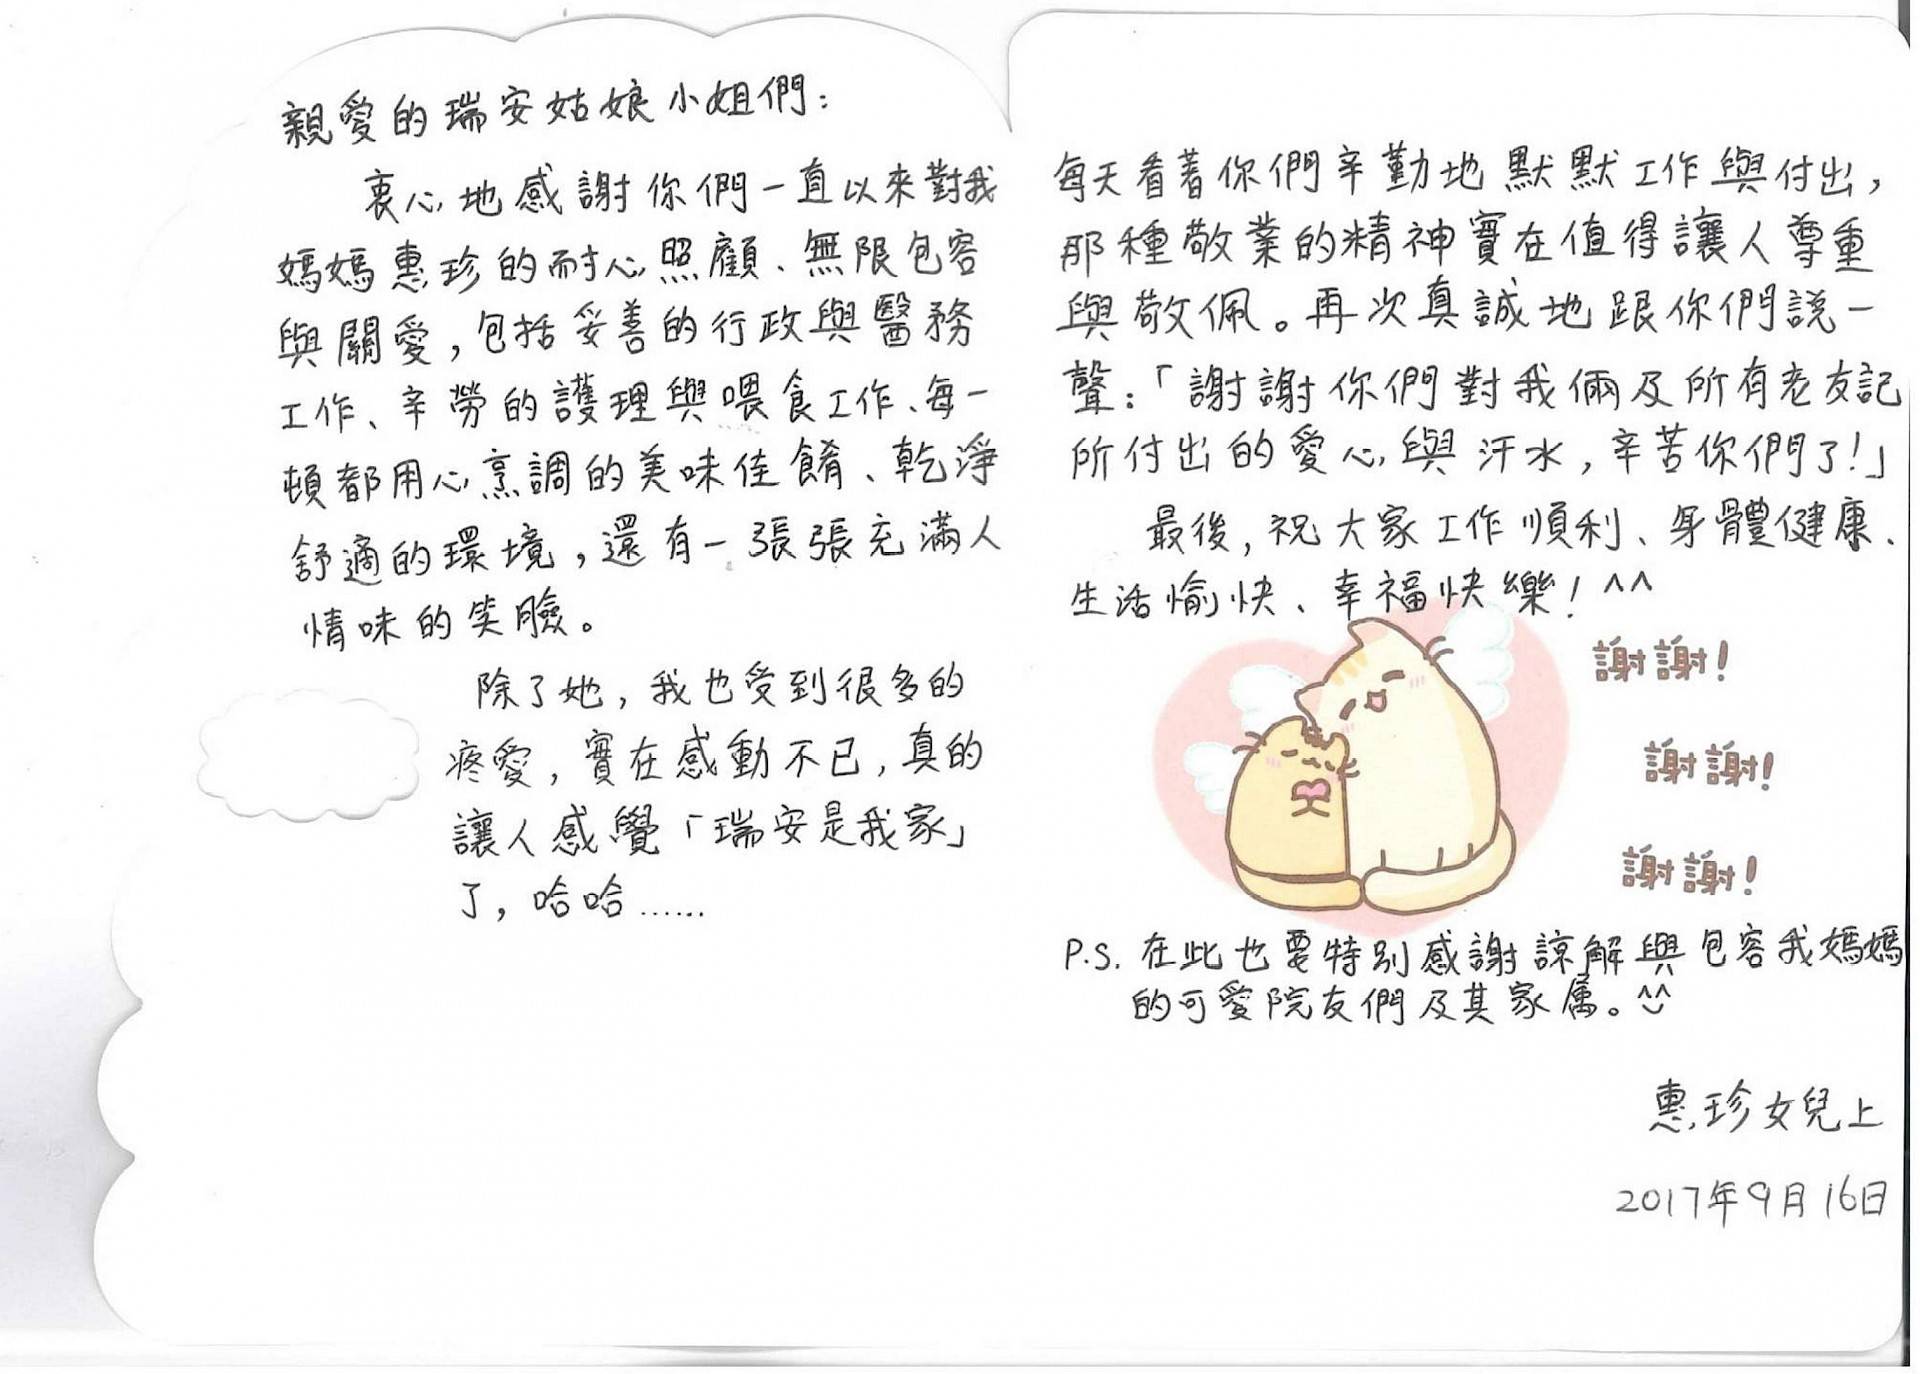 親愛的瑞安姑娘小姐們：
衷心地感謝你們一直以來對我
媽媽惠珍的耐心照顧、無限包容
與關愛，包括妥善的行政與醫務
工作、辛勞的護理與喂食工作、每一
頓都用心烹調的美味佳餚、乾淨
舒適的環境，還有一張張充滿人
情味的笑臉。
除了她，我也受到很多的
疼愛，實在感動不已，真的
讓人感覺「瑞安是我家」
了，哈哈……
每天看著你們辛勤地默默工作與付出，
那種敬業的精神實在值得讓人尊重
與敬佩。再次真誠地跟你們說一
聲：「謝謝你們對我倆及所有老友記
所付出的愛心與汗水，辛苦你們了！」
最後，祝大家工作順利、身體健康、
生活愉快、幸福快樂！^^
謝謝！
謝謝！
謝謝！
P.S. 在此也要特別感謝諒解與包容我媽媽
的可愛院友們及其家属。^^
惠珍女兒上
2017年9月16日